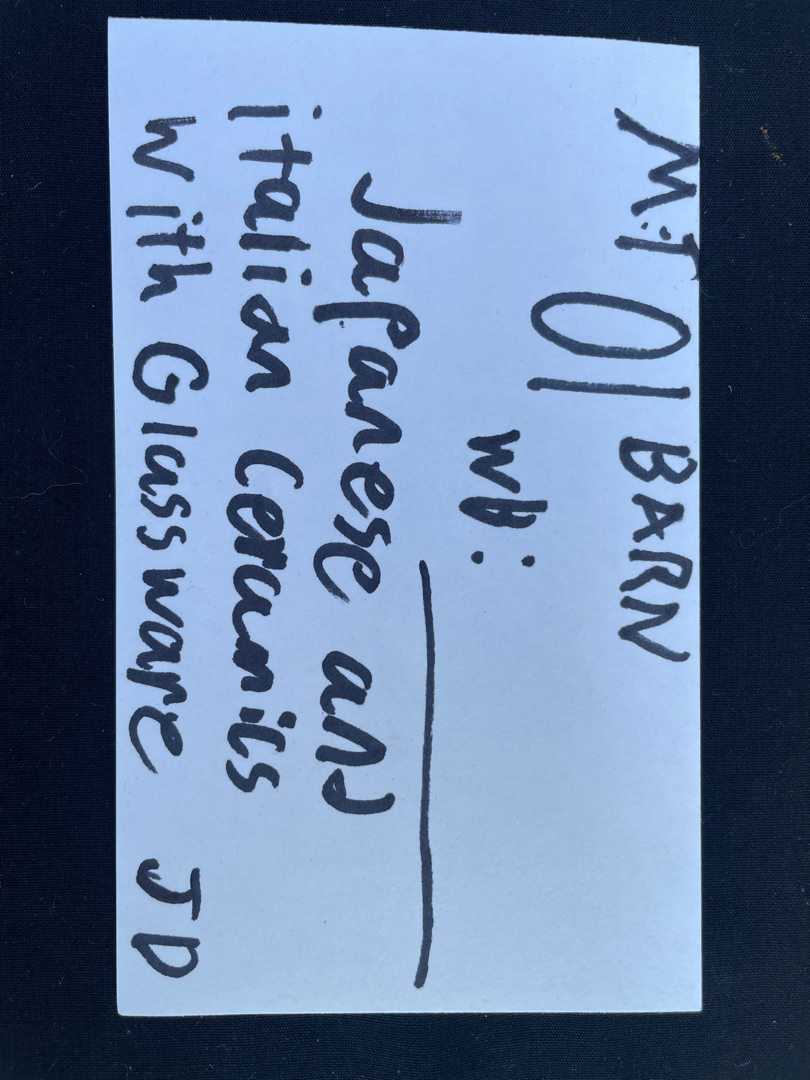 M.T 01 BARN
Wt:
Japanese and
italian Ceramics
with Glassware JD